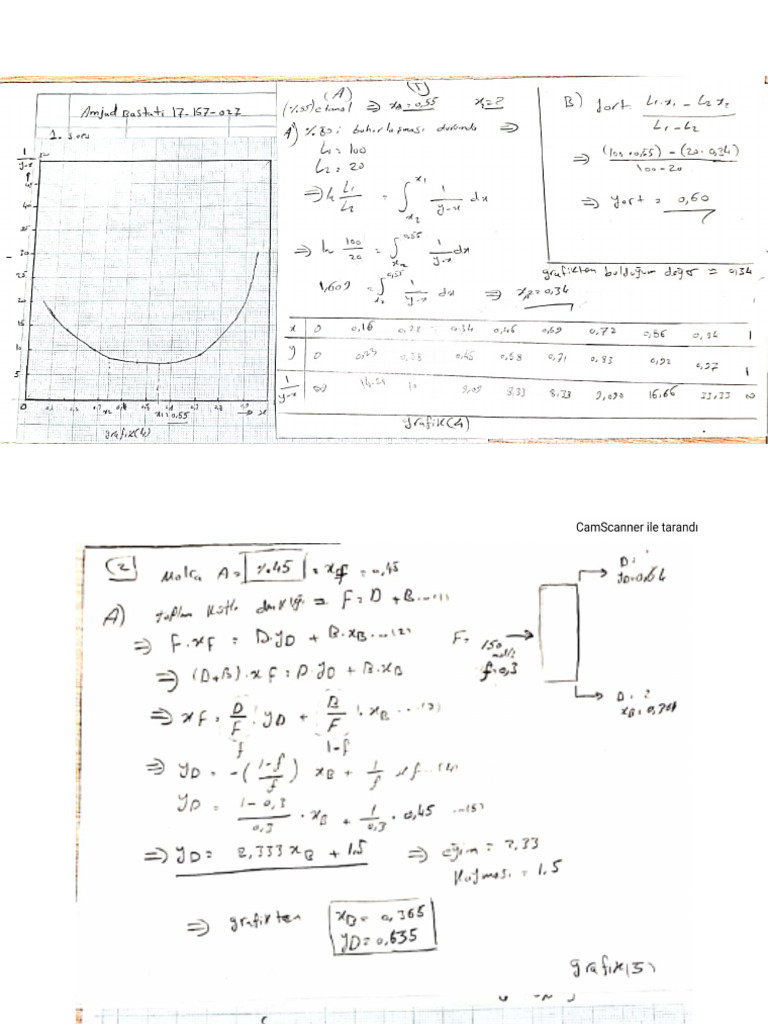 Amjad Bastati 17-157-027
1. soru
1/(y-x)
20
10
5
0,1 0,2 0,3 0,4
x2 x1=0,55
grafik(4)
(A) (1)
(%55) etanol ⇒ xA=0,55 x2=?
A) %80 i buharlaşması durumunda ⇒
L1=100
L2=20
⇒ ln L1/L2 = ∫ x2 x1 1/(y-x) dx
⇒ ln 100/20 = ∫ x2 0,55 1/(y-x) dx
1,609 = ∫ x2 0,55 1/(y-x) dx ⇒ x2=0,34
B) yort = (L1.x1 - L2 x2)/(L1-L2)
⇒ ((100*0,55) - (20.0,34))/(100-20)
⇒ yort = 0,60
grafikten bulduğum değer = 0,34
x 0 0,16 0,28 0,34 0,46 0,59 0,72 0,86 0,94 1
y 0 0,23 0,38 0,45 0,58 0,71 0,83 0,92 0,97 1
1/(y-x) ∞ 10 9,09 8,33 8,33 9,090 16,66 33,33 ∞
grafik(4)
CamScanner ile tarandı
(2) Molca A= %45 = xf = 0,45
A) toplam kütle denkliği = F=D+B...(1)
⇒ F.xF = D.yD + B.xB ...(2)
⇒ (D+B).xF = D.yD + B.xB
⇒ xF = D/F . yD + B/F . xB ...(3)
f 1-f
⇒ yD = -((1-f)/f) xB + 1/f xf ...(4)
yD = (1-0,3)/0,3 . xB + 1/0,3 . 0,45 ...(5)
⇒ yD = 2,333 xB + 1.5 ⇒ eğim = 2,33
Kayması = 1,5
⇒ grafikten xB= 0,365
yD= 0,635
grafik(5)
D= ?
yD=0,64
F= 150
f=0,3